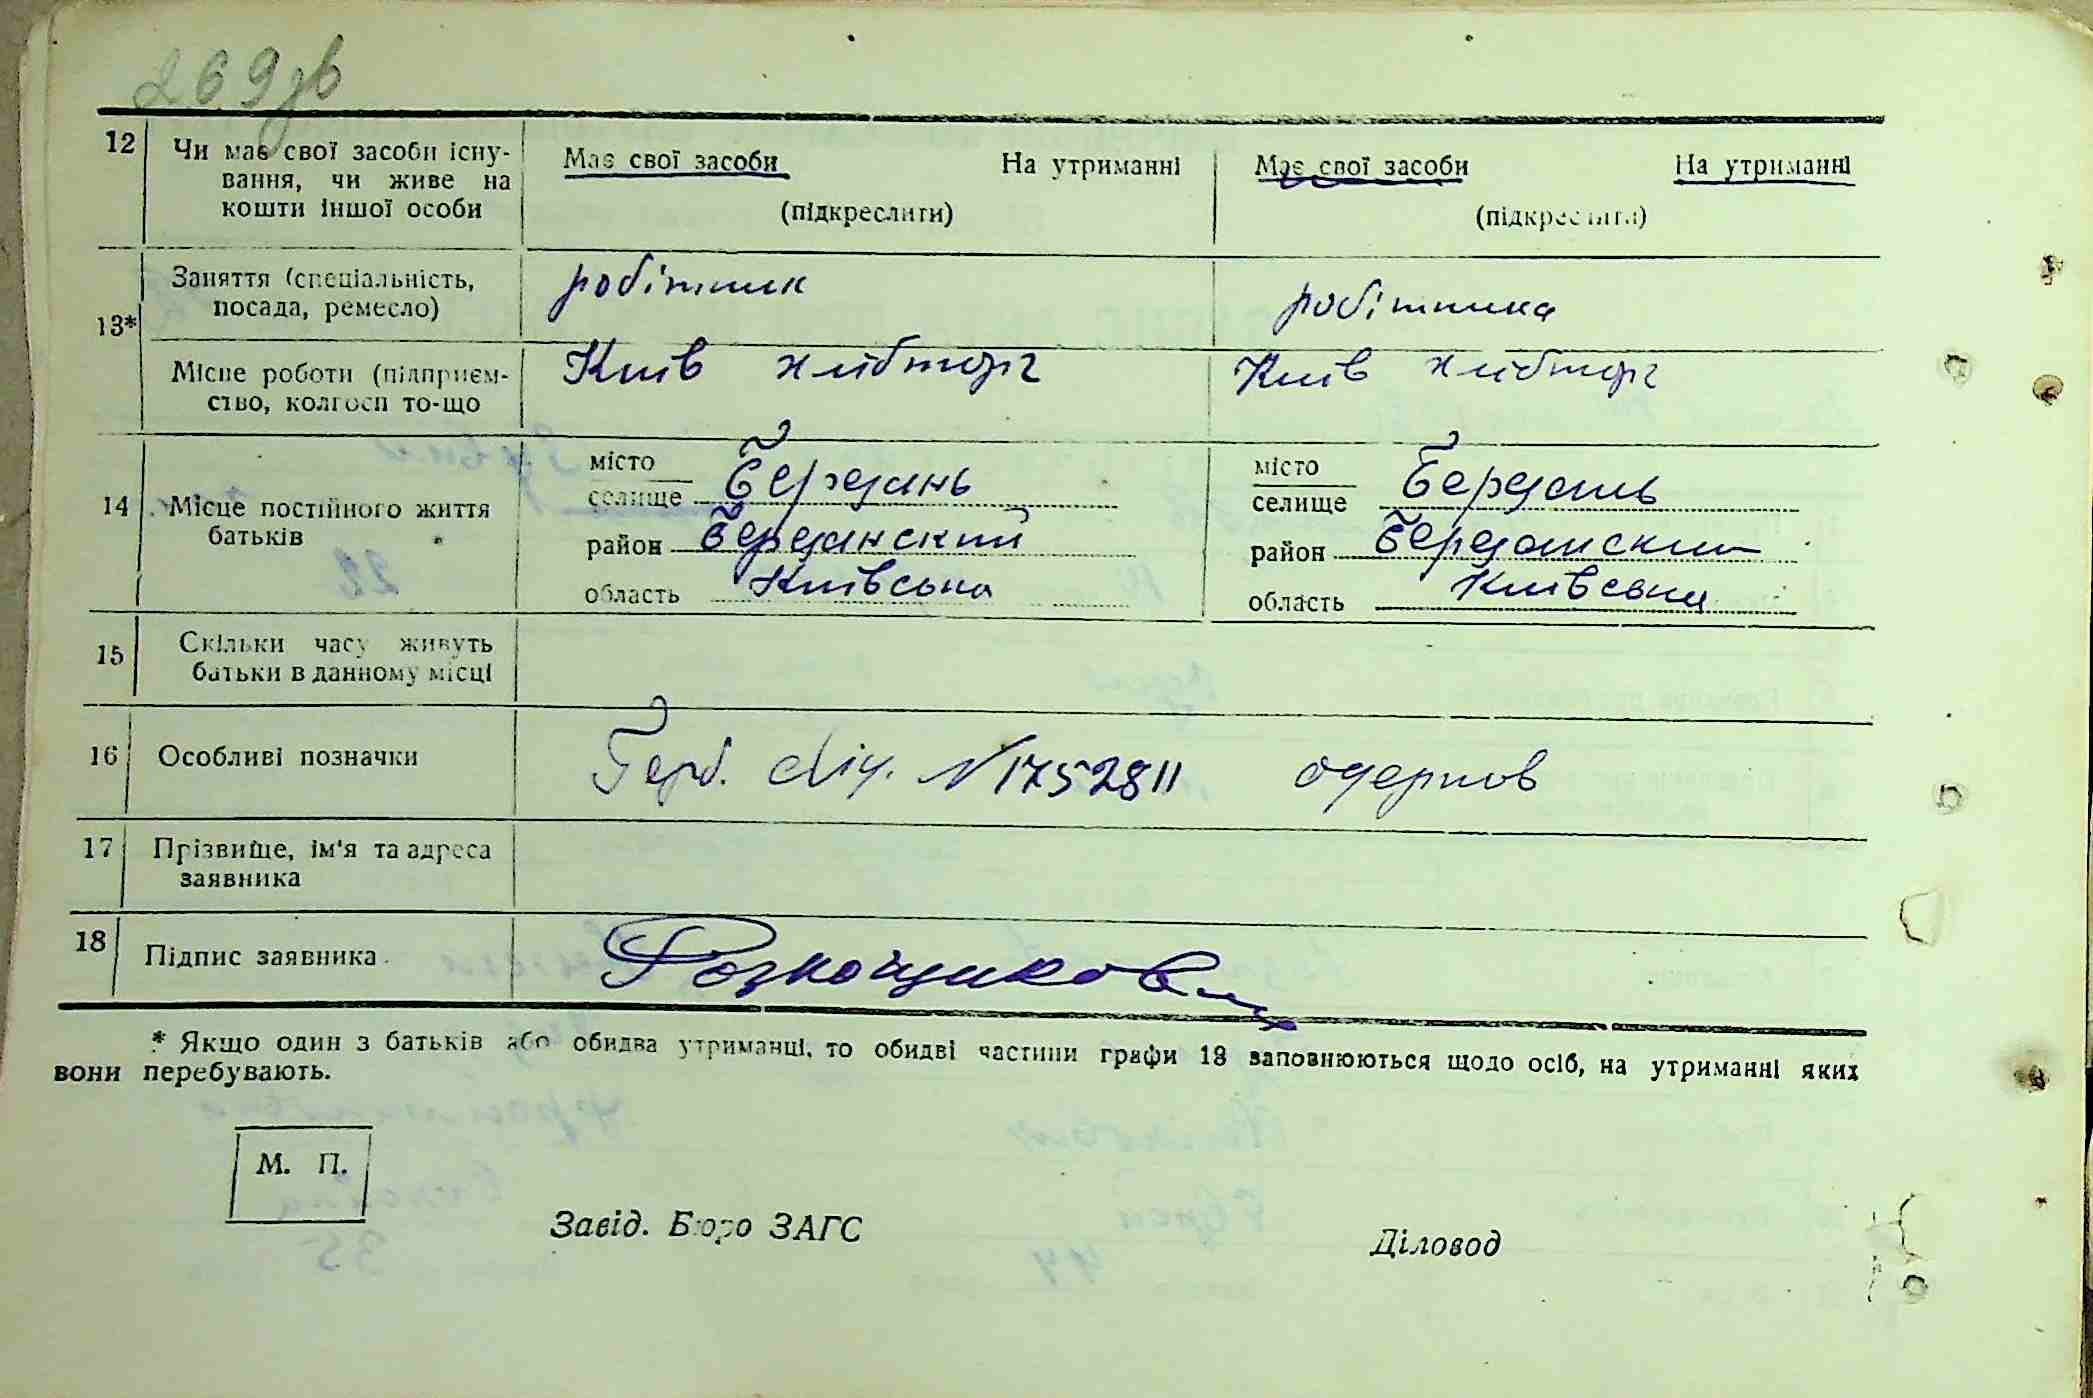 269зв
12 Чи має свої засоби існу- Має свої засоби На утриманні Має свої засоби На утриманні
вання, чи живе на
кошти іншої особи (підкреслити) (підкреслити)
Заняття (спеціальність, робітник робітника
посада, ремесло)
13*
Місце роботи (підприєм- Київ хлібторг Київ хлібторг
ство, колгосп то-що
14 Місце постійного життя місто Бердянь місто
батьків селище селище
район район
область Київська область Київська
15 Скільки часу живуть
батьки в данному місці
16 Особливі позначки Герб. № 1752811 одержов
17 Прізвище, ім'я та адреса
заявника
18 Підпис заявника Рознощиков
* Якщо один з батьків або обидва утриманці, то обидві частини графи 13 заповнюються щодо осіб, на утриманні яких
вони перебувають.
М. П.
Завід. Бюро ЗАГС Діловод